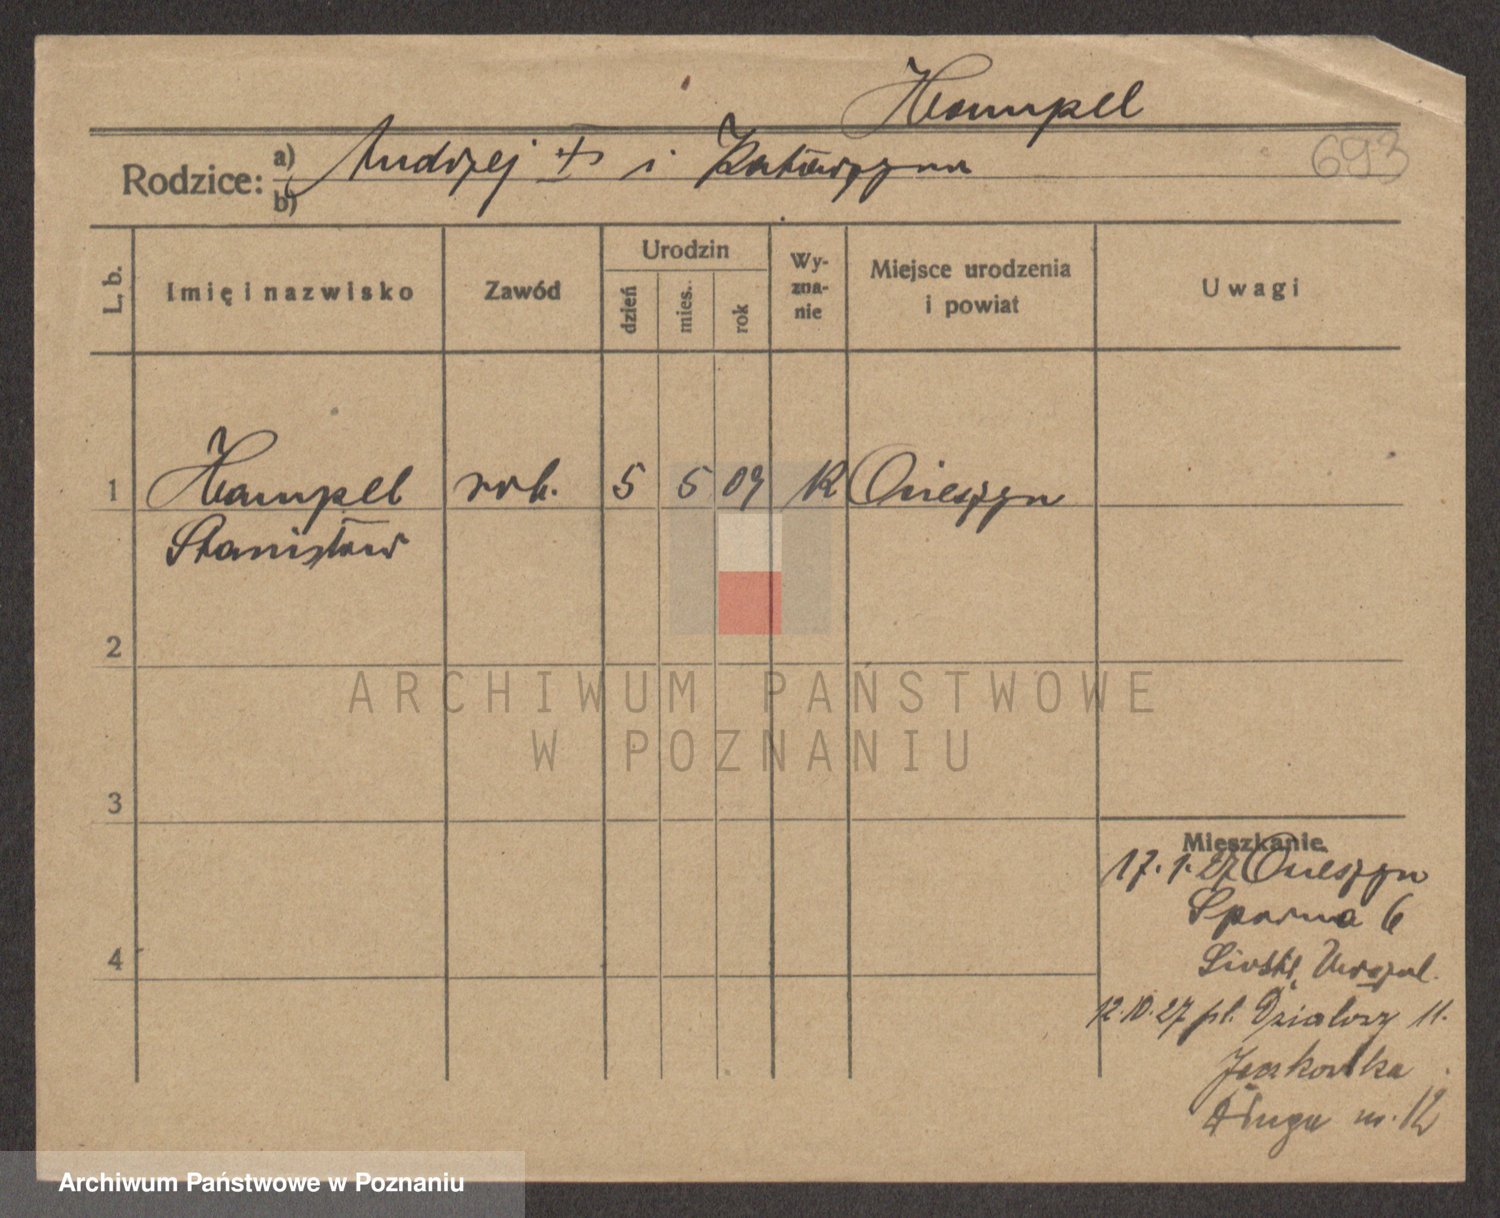 Hampel
693
Rodzice:
a) Andrzej + i Katarzyna
b)
L. b.
Imię i nazwisko
Zawód
Urodzin
dzień
mies.
rok
Wy-
zna-
nie
Miejsce urodzenia
i powiat
Uwagi
1 Hampel rob. 5 5 09 K Cieszyn
Stanisław
2
ARCHIWUM PAŃSTWOWE
W POZNANIU
3
Mieszkanie
17.1.27 Cieszyn
6
4
12.10.27 pl. Działowy 11.
Długa nr. 12
Archiwum Państwowe w Poznaniu